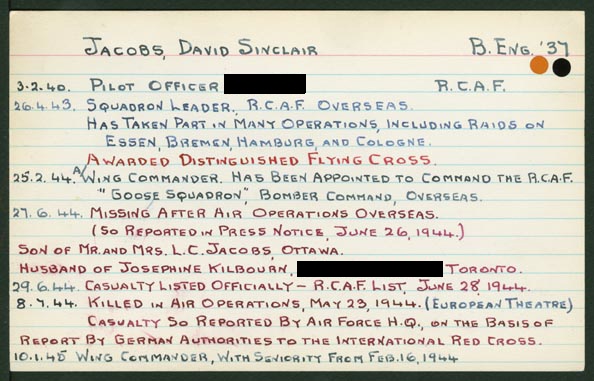 JACOBS, DAVID SINCLAIR B. ENG. '37
3.2.40. PILOT OFFICER R.C.A.F.
26.4.43. SQUADRON LEADER, R.C.A.F. OVERSEAS.
HAS TAKEN PART IN MANY OPERATIONS, INCLUDING RAIDS ON
ESSEN, BREMEN, HAMBURG, AND COLOGNE.
AWARDED DISTINGUISHED FLYING CROSS.
25.2.44. A/WING COMMANDER. HAS BEEN APPOINTED TO COMMAND THE R.C.A.F.
"GOOSE SQUADRON", BOMBER COMMAND, OVERSEAS.
27.6.44. MISSING AFTER AIR OPERATIONS OVERSEAS.
(SO REPORTED IN PRESS NOTICE, JUNE 26, 1944.)
SON OF MR. AND MRS. L.C. JACOBS, OTTAWA.
HUSBAND OF JOSEPHINE KILBOURN, TORONTO.
29.6.44. CASUALTY LISTED OFFICIALLY – R.C.A.F. LIST, JUNE 28, 1944.
8.7.44. KILLED IN AIR OPERATIONS, MAY 23, 1944. (EUROPEAN THEATRE)
CASUALTY SO REPORTED BY AIR FORCE H.Q., ON THE BASIS OF
REPORT BY GERMAN AUTHORITIES TO THE INTERNATIONAL RED CROSS.
10.1.45 WING COMMANDER, WITH SENIORITY FROM FEB. 16, 1944